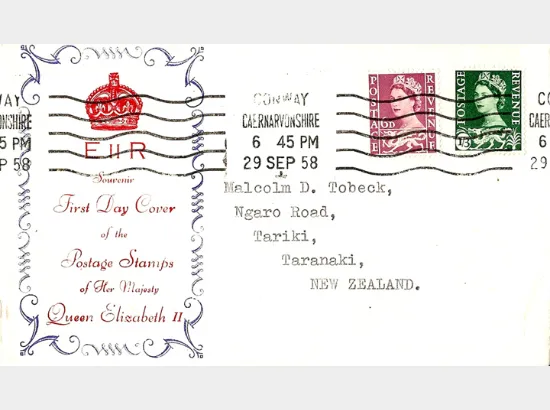 WAY
CONWAY
CO
ONSHIRE
CAERNARVONSHIRE
CAER
5 PM
6 45 PM
6
P 58
29 SEP 58
29
POSTAGE
REVENUE
POSTAGE
REVENUE
1/3
E II R
Souvenir
First Day Cover
of the
Postage Stamps
of Her Majesty
Queen Elizabeth II
Malcolm D. Tobeck,
Ngaro Road,
Tariki,
Taranaki,
NEW ZEALAND.